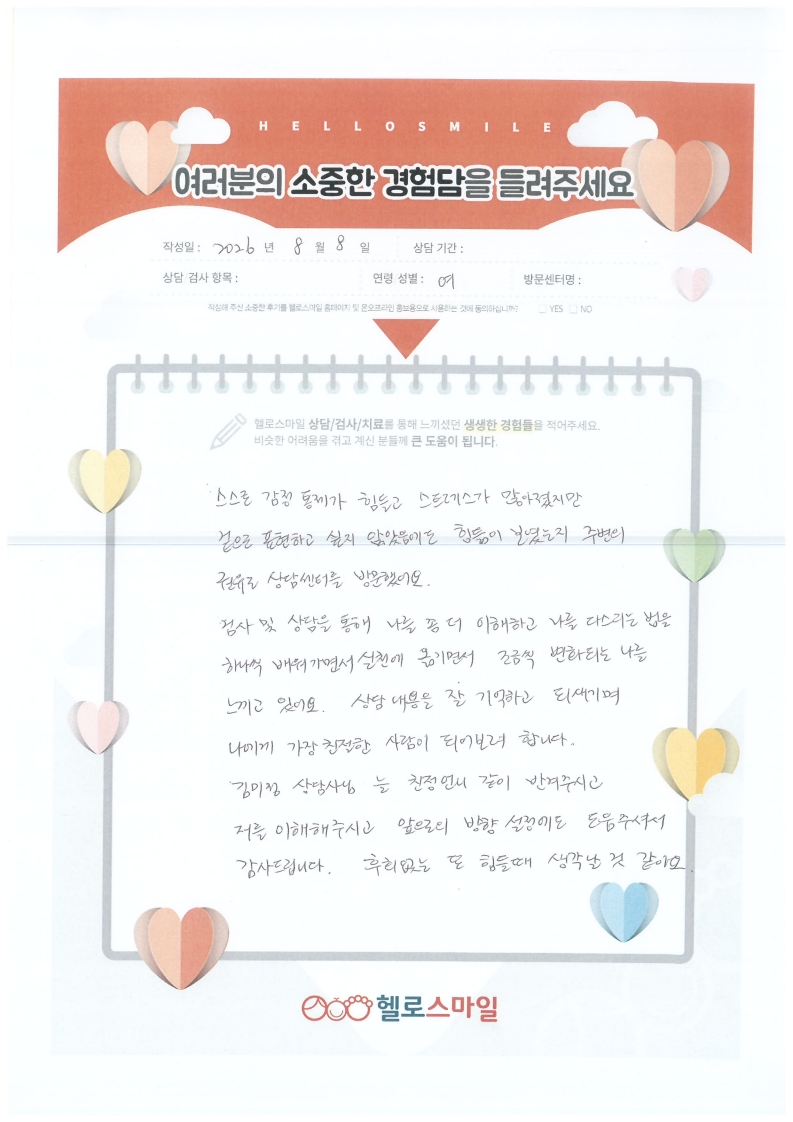 HELLOSMILE
여러분의 소중한 경험담을 들려주세요
작성일 : 2026 년 8 월 8 일 상담 기간 :
상담 검사 항목 : 연령 성별 : 여 방문센터명 :
작성해 주신 소중한 후기를 헬로스마일 홈페이지 및 온오프라인 홍보용으로 사용하는 것에 동의하십니까? YES NO
헬로스마일 상담/검사/치료를 통해 느끼셨던 생생한 경험들을 적어주세요.
비슷한 어려움을 겪고 계신 분들께 큰 도움이 됩니다.
스스로 감정 통제가 힘들고 스트레스가 많아졌지만
겉으로 표현하고 싶지 않았음에도 힘듦이 보였는지 주변의
권유로 상담센터를 방문했어요.
검사 및 상담을 통해 나를 좀 더 이해하고 나를 다스리는 법을
하나씩 배워가면서 실천에 옮기면서 조금씩 변화되는 나를
느끼고 있어요. 상담 내용을 잘 기억하고 되새기며
나에게 가장 친절한 사람이 되어보려 합니다.
상담사님 는 친정언니 같이 반겨주시고
저를 이해해주시고 앞으로의 방향 설정에도 도움주셔서
감사드립니다. 후회없는 또 힘들때 생각날 것 같아요
헬로스마일